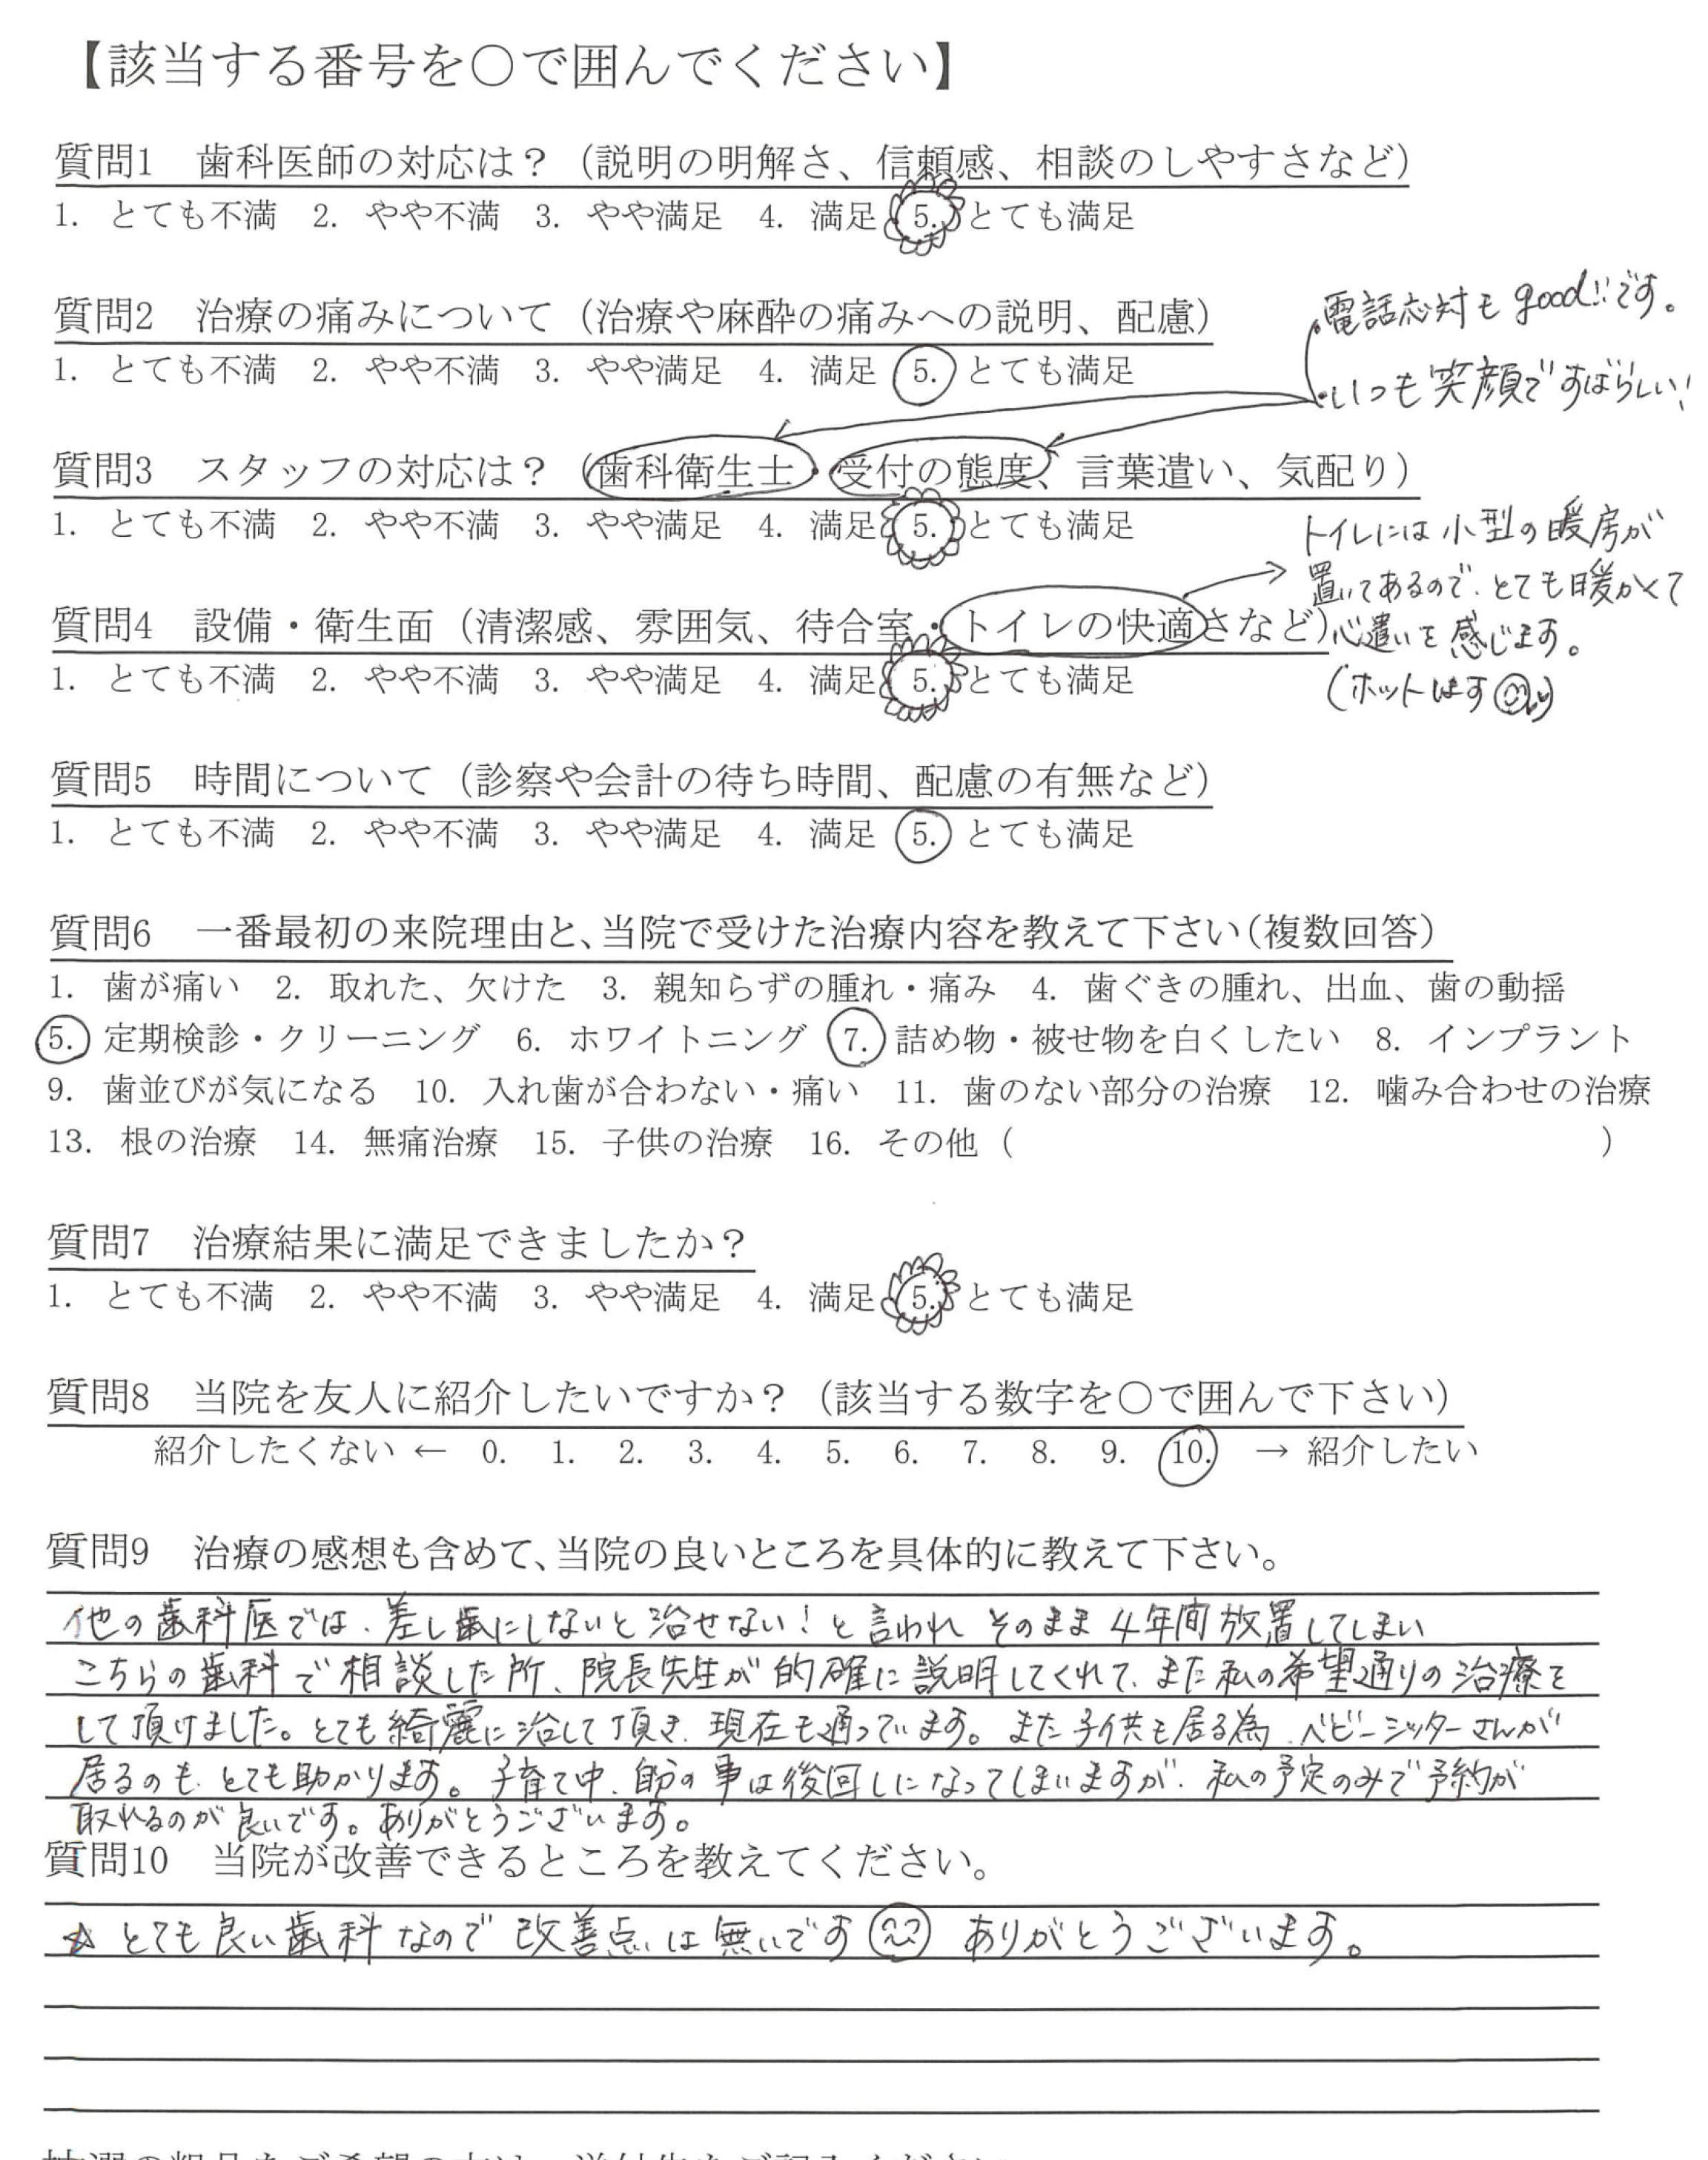 【該当する番号を○で囲んでください】
質問1　歯科医師の対応は？（説明の明解さ、信頼感、相談のしやすさなど）
1.　とても不満　2.　やや不満　3.　やや満足　4.　満足　5.　とても満足
質問2　治療の痛みについて（治療や麻酔の痛みへの説明、配慮）
1.　とても不満　2.　やや不満　3.　やや満足　4.　満足　5.　とても満足
・電話応対も good!!です。
・いつも笑顔ですばらしい!
質問3　スタッフの対応は？（歯科衛生士・受付の態度、言葉遣い、気配り）
1.　とても不満　2.　やや不満　3.　やや満足　4.　満足　5.　とても満足
トイレには小型の暖房が
置いてあるので、とても暖かくて
心遣いを感じます。
（ホットします）
質問4　設備・衛生面（清潔感、雰囲気、待合室・トイレの快適さなど）
1.　とても不満　2.　やや不満　3.　やや満足　4.　満足　5.　とても満足
質問5　時間について（診察や会計の待ち時間、配慮の有無など）
1.　とても不満　2.　やや不満　3.　やや満足　4.　満足　5.　とても満足
質問6　一番最初の来院理由と、当院で受けた治療内容を教えて下さい（複数回答）
1.　歯が痛い　2.　取れた、欠けた　3.　親知らずの腫れ・痛み　4.　歯ぐきの腫れ、出血、歯の動揺
5.　定期検診・クリーニング　6.　ホワイトニング　7.　詰め物・被せ物を白くしたい　8.　インプラント
9.　歯並びが気になる　10.　入れ歯が合わない・痛い　11.　歯のない部分の治療　12.　噛み合わせの治療
13.　根の治療　14.　無痛治療　15.　子供の治療　16.　その他（　　　）
質問7　治療結果に満足できましたか？
1.　とても不満　2.　やや不満　3.　やや満足　4.　満足　5.　とても満足
質問8　当院を友人に紹介したいですか？（該当する数字を○で囲んで下さい）
紹介したくない ←　0.　1.　2.　3.　4.　5.　6.　7.　8.　9.　10.　→ 紹介したい
質問9　治療の感想も含めて、当院の良いところを具体的に教えて下さい。
他の歯科医では、差し歯にしないと治せない！と言われ そのまま 4年間放置してしまい
こちらの歯科で相談した所、院長先生が的確に説明してくれて、また私の希望通りの治療を
して頂けました。とても綺麗に治して頂き、現在も通っています。また子供も居る為、ベビーシッターさんが
居るのも、とても助かります。子育て中、自分の事は後回しになってしまいますが、私の予定のみで予約が
取れるのが良いです。ありがとうございます。
質問10　当院が改善できるところを教えてください。
☆ とても良い歯科なので改善点は無いです ありがとうございます。